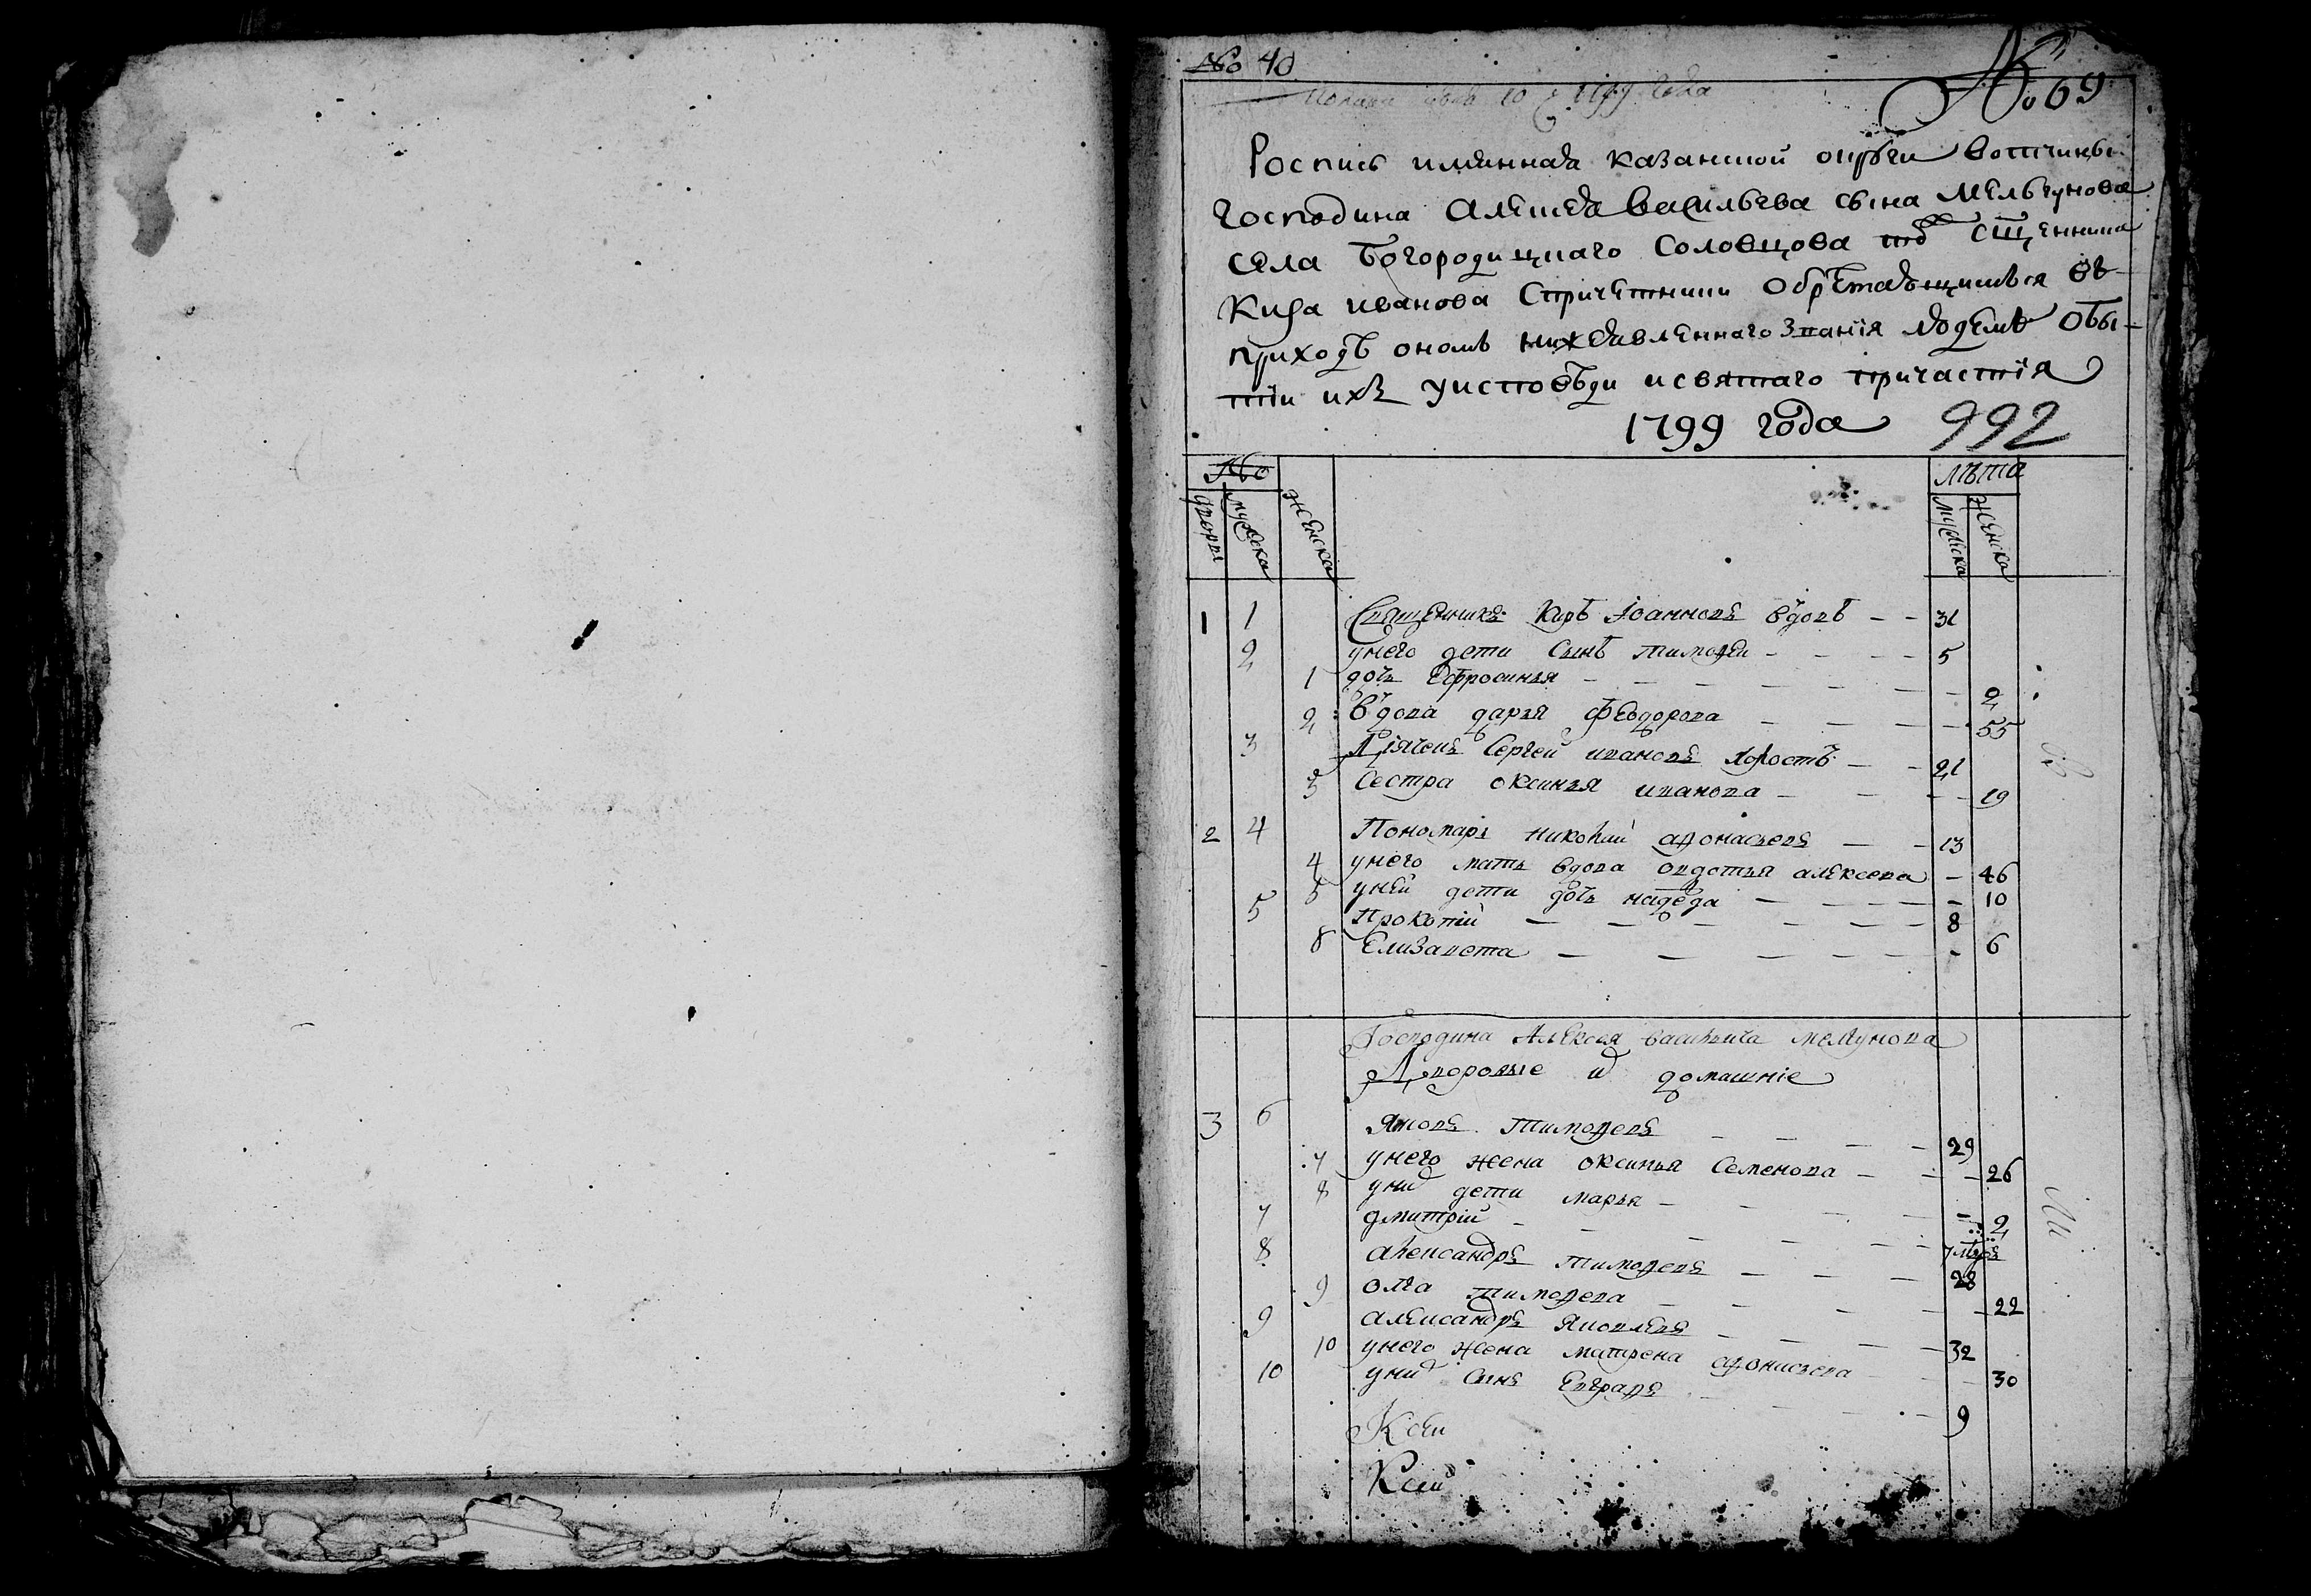 № 40
№ 69
10 1799 года
Роспись имянная казанской округи вотчины
господина Алексея васильева сына Мельгунова
села Богородицкаго Соловцова сщенника
Кира иванова Спричетники Обретающимъся въ
приходѣ ономъ нижеявленнаго Званїя людемъ Обы-
тїи ихъ уисповѣди исвятаго причастїя
1799 года 992
№ лѣта
дворы мужеска женска мужеска женска
1 1 Священникъ Киръ Іоанновъ вдовъ 31
2 унего дети сынъ тимофеи 5
1 дочь Ефросинья 2
2 вдова дарья Феодорова 55
3 Дьячекъ Сергей ивановъ холостъ 21
3 Сестра оксинья иванова 19
2 4 Пономарь николай афонасьевъ 13
4 унего мать вдова овдотья алексеева 46
5 уней дети дочь надежда 10
5 Прокопій 8
6 Елизавета 6
Господина Алексея васильича мелгунова
Дворовые и домашніе
3 6 Яковъ тимофеевъ 29
7 унего жена оксинья Семенова 26
8 уних дети марья 2
7 дмитрій
8 александръ тимофеевъ 28
9 олга тимофеева 22
9 александръ Яковлевъ 32
10 унего жена матрена афонисьева 30
10 уних сынъ Евграфъ 9
Ксеи
Ксеи